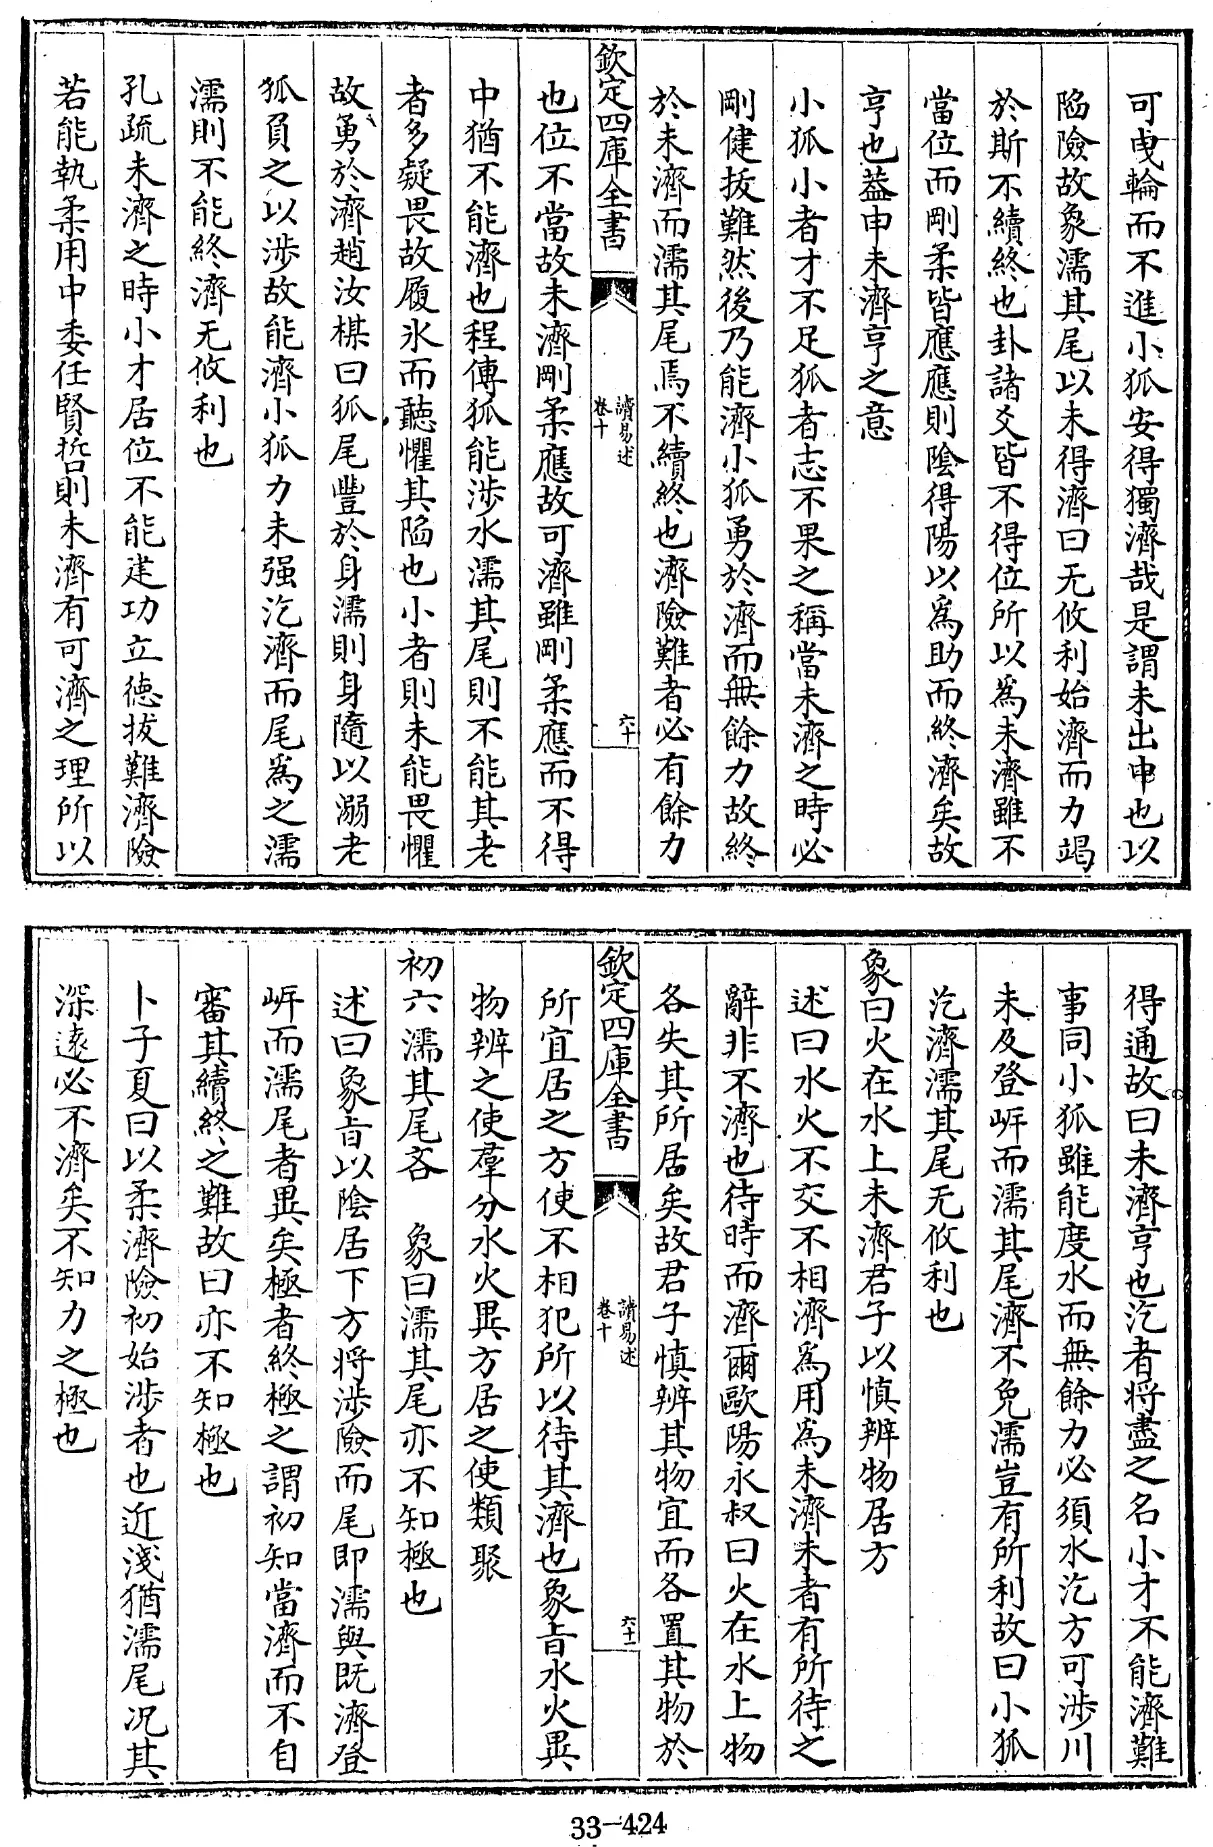 可曵輪而不進小狐安得獨濟哉是謂未出中也以
陷險故象濡其尾以未得濟曰无攸利始濟而力竭
於斯不續終也卦諸爻皆不得位所以為未濟雖不
當位而剛柔皆應應則隂得陽以為助而終濟矣故
亨也葢申未濟亨之意
小狐小者才不足狐者志不果之稱當未濟之時必
剛健拔難然後乃能濟小狐勇於濟而無餘力故終
於未濟而濡其尾焉不續終也濟險難者必有餘力
欽定四庫全書
讀易述
卷十
六十
也位不當故未濟剛柔應故可濟雖剛柔應而不得
中猶不能濟也程傳狐能涉水濡其尾則不能其老
者多疑畏故履氷而聽懼其陷也小者則未能畏懼
故勇於濟趙汝楳曰狐尾豐於身濡則身隨以溺老
狐負之以涉故能濟小狐力未强汔濟而尾為之濡
濡則不能終濟无攸利也
孔疏未濟之時小才居位不能建功立德拔難濟險
若能執柔用中委任賢哲則未濟有可濟之理所以
得通故曰未濟亨也汔者將盡之名小才不能濟難
事同小狐雖能度水而無餘力必須水汔方可涉川
未及登岸而濡其尾濟不免濡豈有所利故曰小狐
汔濟濡其尾无攸利也
象曰火在水上未濟君子以慎辨物居方
述曰水火不交不相濟為用為未濟未者有所待之
辭非不濟也待時而濟爾歐陽永叔曰火在水上物
各失其所居矣故君子慎辨其物宜而各置其物於
欽定四庫全書
讀易述
卷十
六十一
所宜居之方使不相犯所以待其濟也象㫖水火異
物辨之使羣分水火異方居之使類聚
初六濡其尾吝　象曰濡其尾亦不知極也
述曰象㫖以隂居下方將涉險而尾即濡與既濟登
岸而濡尾者異矣極者終極之謂初知當濟而不自
審其續終之難故曰亦不知極也
卜子夏曰以柔濟險初始涉者也近淺猶濡尾况其
深逺必不濟矣不知力之極也
33-424